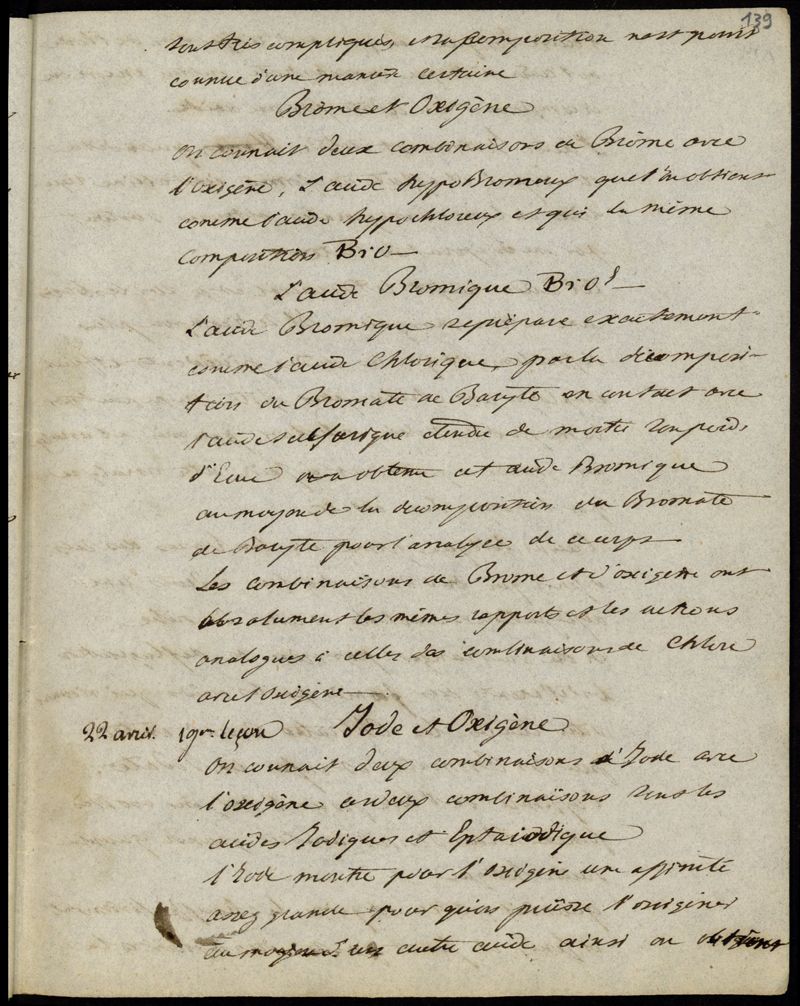 139
sont très compliqués, et sa composition n'est point
connue d'une manière certaine
Brôme et Oxigène
On connait deux combinaisons du Brôme avec
l'oxigène, L'acide hypoBromeux que l'on obtient
comme l'acide hypochloreux et qui la même
composition BrO —
L'acide Bromique BrO⁵ —
L'acide Bromique se prépare exactement
comme l'acide Chlorique, par la décomposi-
tion du Bromate de Baryte en contact avec
l'acide sulfurique étendu de moitié son poids
d'Eau on a obtenu cet acide Bromique
au moyen de la décomposition du Bromate
de Baryte pour l'analyse de ce corps
Les combinaisons de Brome et d'oxigene ont
absolument les mêmes rapports et les actions
analogues à celles des combinaisons de Chlore
avec l'oxigène —
22 avril. 19me leçon Iode et Oxigène
On connait deux combinaisons d'Iode avec
l'oxigène ces deux combinaisons sont les
acides Iodiques et Eptaiodique
l'Iode montre pour l'oxigène une affinité
assez grande pour qu'on puisse l'oxigéner
au moyen d'un autre acide ainsi on obtient